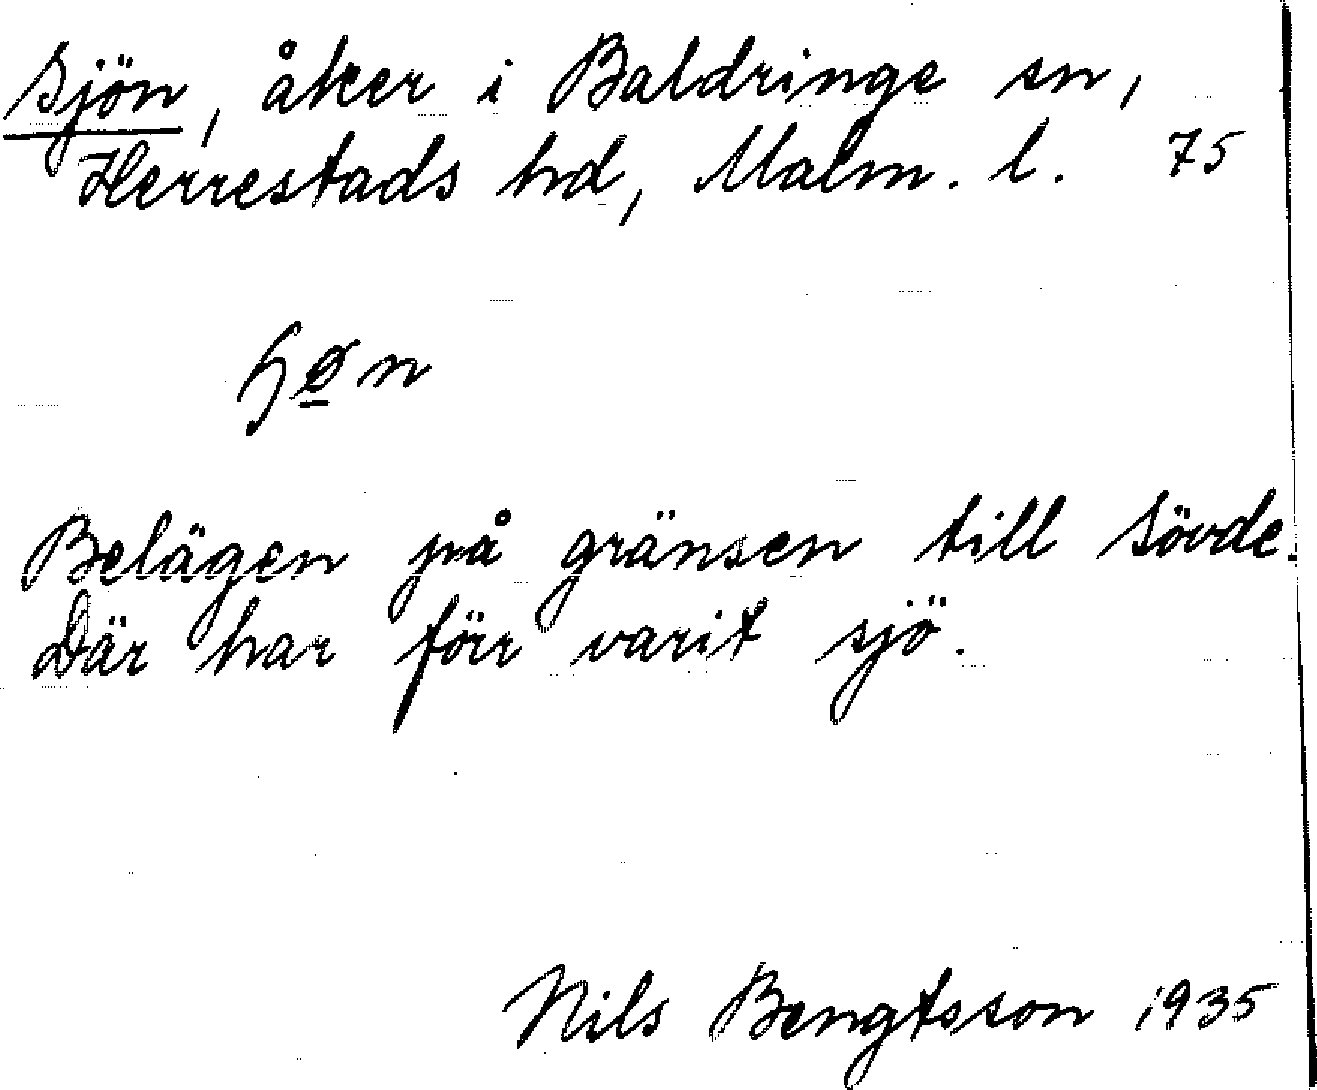 Sjön, åker i Baldringe sn,
Herrestads hd, Malm. l. 75
Belägen på gränsen till Sövde.
Där har förr varit sjö.
Nils Bengtsson 1935